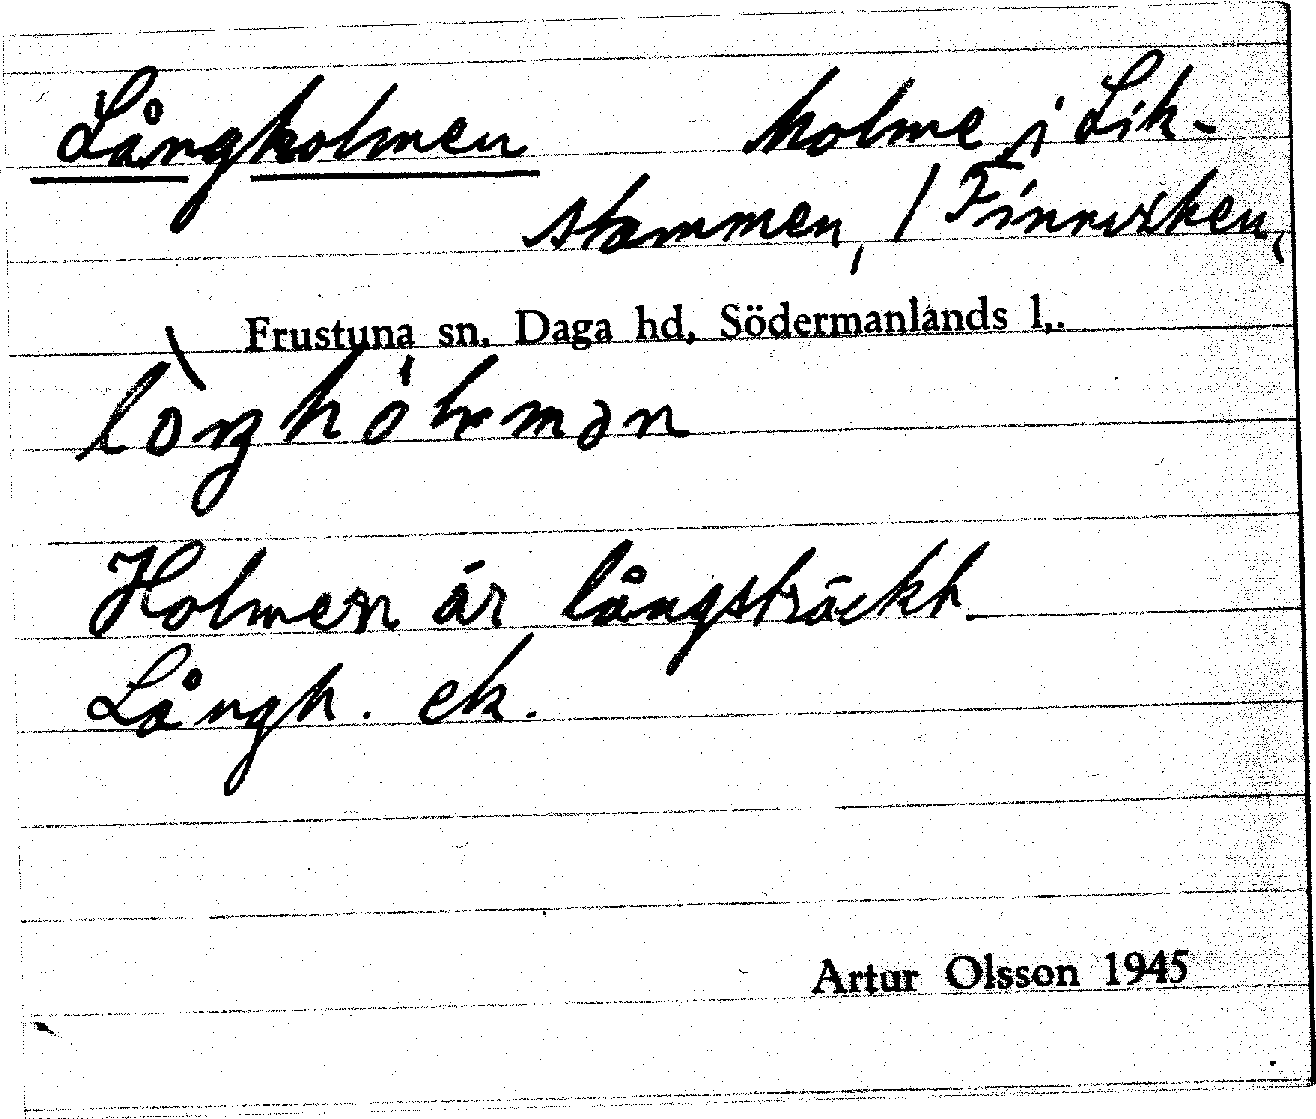 Långholmen holme i Lik-
stammen, / Finnviken,
Frustuna sn, Daga hd, Södermanlands l,.
Holmen är långsträckt
Långh. ek.
Artur Olsson 1945